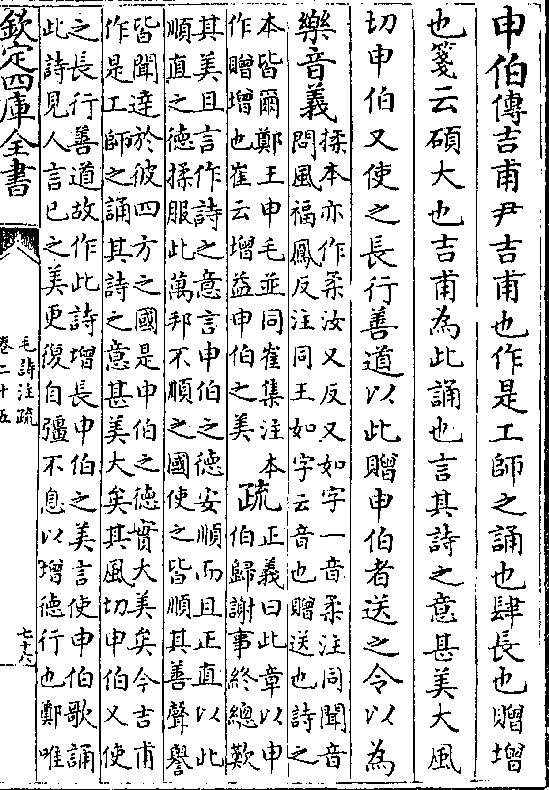 申伯傳吉甫尹吉甫也作是工師之誦也肆長也贈增
也箋云碩大也吉甫為此誦也言其詩之意甚美大風
切申伯又使之長行善道以此贈申伯者送之令以為
樂音義
揉本亦作柔汝又反又如字一音柔注同聞音
問風福鳳反注同王如字云音也贈送也詩之
本皆爾鄭王申毛並同崔集注本
作贈增也崔云增益申伯之美
疏
正義曰此章以申
伯歸謝事終總歎
其美且言作詩之意言申伯之德安順而且正直以此
順直之德揉服此萬邦不順之國使之皆順其善聲譽
皆聞達於彼四方之國是申伯之德實大美矣今吉甫
作是工師之誦其詩之意甚美大矣其風切申伯又使
之長行善道故作此詩增長申伯之美言使申伯歌誦
此詩見人言已之美更復自彊不息以增德行也鄭唯
欽定四庫全書
毛詩注疏
卷二十五